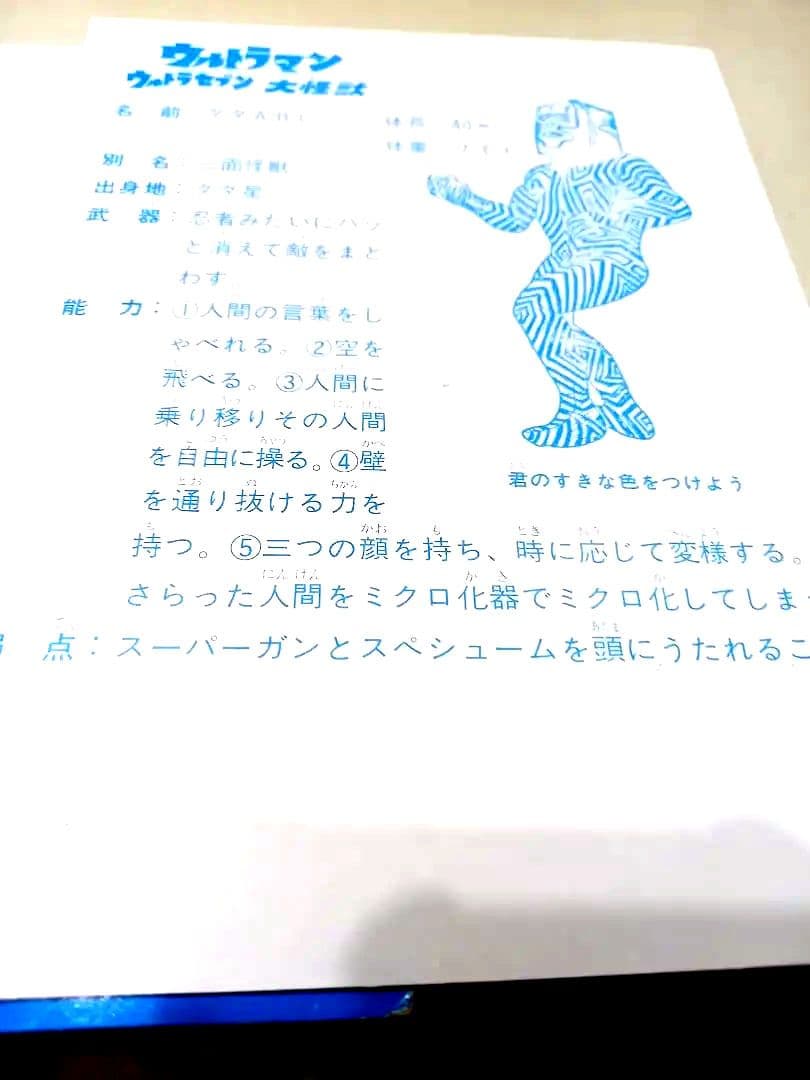 ウルトラマン
ウルトラセブン 大怪獣
名 前
体重
別 名：三面怪獣
出身地：ダダ星
武 器：忍者みたいにパッ
と消えて敵をまど
わす。
能 力：①人間の言葉をし
ゃべれる。②空を
飛べる。③人間に
乗り移りその人間
を自由に操る。④壁
を通り抜ける力を
持つ。⑤三つの顔を持ち、時に応じて変様する。
さらった人間をミクロ化器でミクロ化してしま
点：スーパーガンとスペシュームを頭にうたれるこ
君のすきな色をつけよう